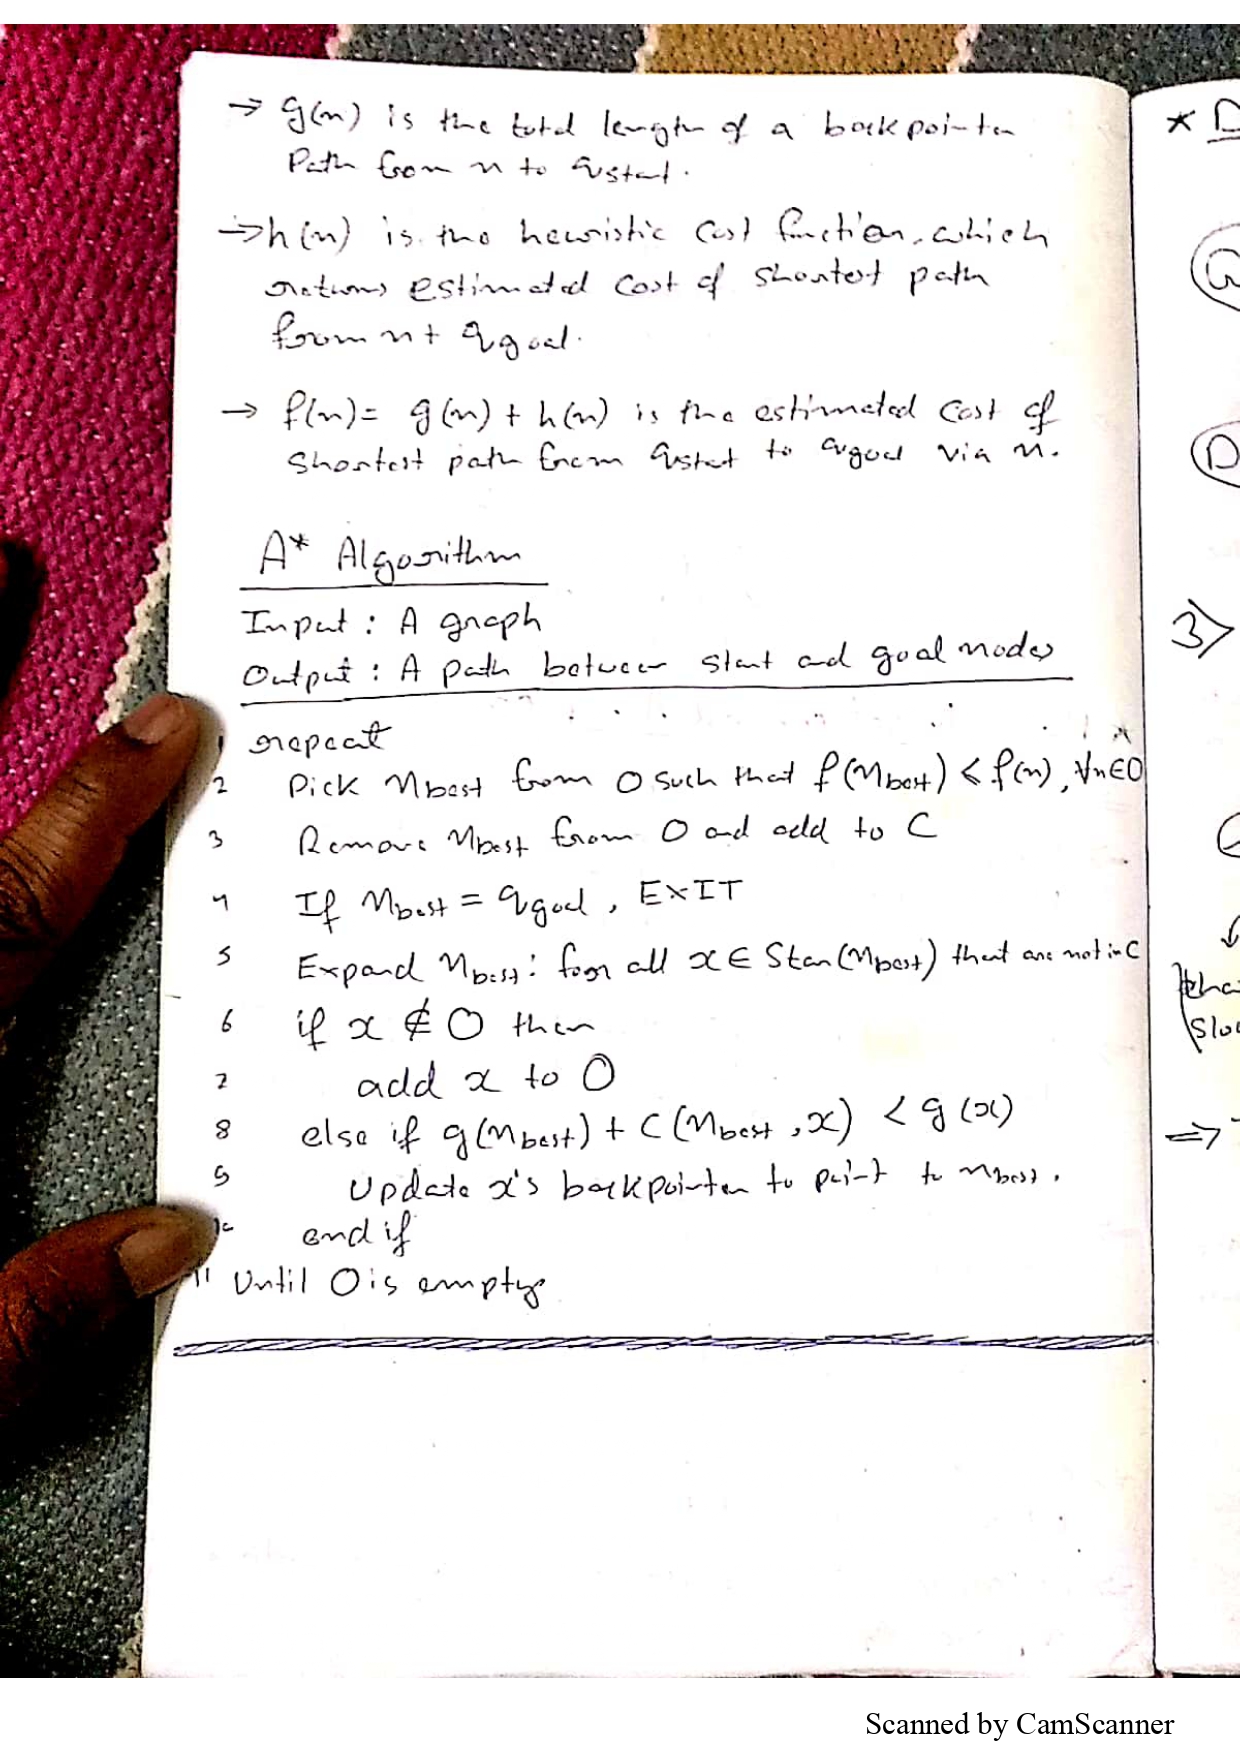 → g(n) is the total length of a backpointer
Path from n to qstart.
→ h(n) is the heuristic cost function, which
returns estimated cost of shortest path
from n t qgoal.
→ f(n) = g(n) + h(n) is the estimated cost of
shortest path from qstart to qgoal via n.
A* Algorithm
Input : A graph
Output : A path between start and goal nodes
1 repeat
2 Pick nbest from O such that f(nbest) < f(n), ∀n∈O
3 Remove nbest from O and add to C
4 If nbest = qgoal, EXIT
5 Expand nbest : for all x ∈ Star(nbest) that are not in C
6 if x ∉ O then
7 add x to O
8 else if g(nbest) + C(nbest, x) < g(x)
9 Update x's backpointer to point to nbest.
10 end if
11 Until O is empty
* D
3)
⇒
Scanned by CamScanner